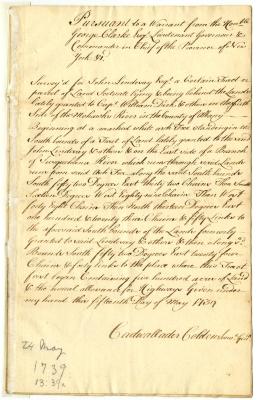 Pursuant to a Warrant from the Honble
George Clarke Esqr. Lieutenant Governour &
Commander in Chief of the Province of New
York &c.
Survey'd for John Lindesay Esqr. a Certain Tract or
parcel of Land Scituate lying & being behind the Lands
lately granted to Capt. William Dick & others on the South
Side of the Mohawks River in the County of Albany
Beginning at a marked white ash Tree standing in the
South bounds of a Tract of Land lately granted to the said
John Lindesay & others & on the East side of a Branch
of Susquehana River which runs through said Lands
runs from said Ash Tree along the said South bounds
South fifty two Degrees East thirty two Chains Then South
Degrees West Eighty Chains Then West
forty eight Chains Then North thirteen Degrees East
one hundred & twenty three Chains & fifty Links to
the aforesaid South bounds of the Lands formerly
granted to said Lindesay & others & then along sd.
Bounds South fifty two Degrees East twenty four
Chains & forty links to the place where this Tract
first began Containing five hundred acres of Land
& the usual allowance for Highways Given under
my hand this fifteenth Day of May 1739
Cadwallader Colden
24 May
1739
13:39a